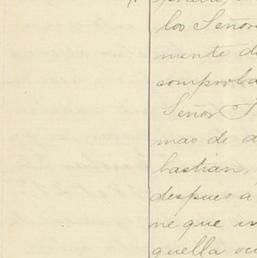 los Señor
mente d
comproba
Señor
mas de a
bastian,
despues a
ne que in
quella